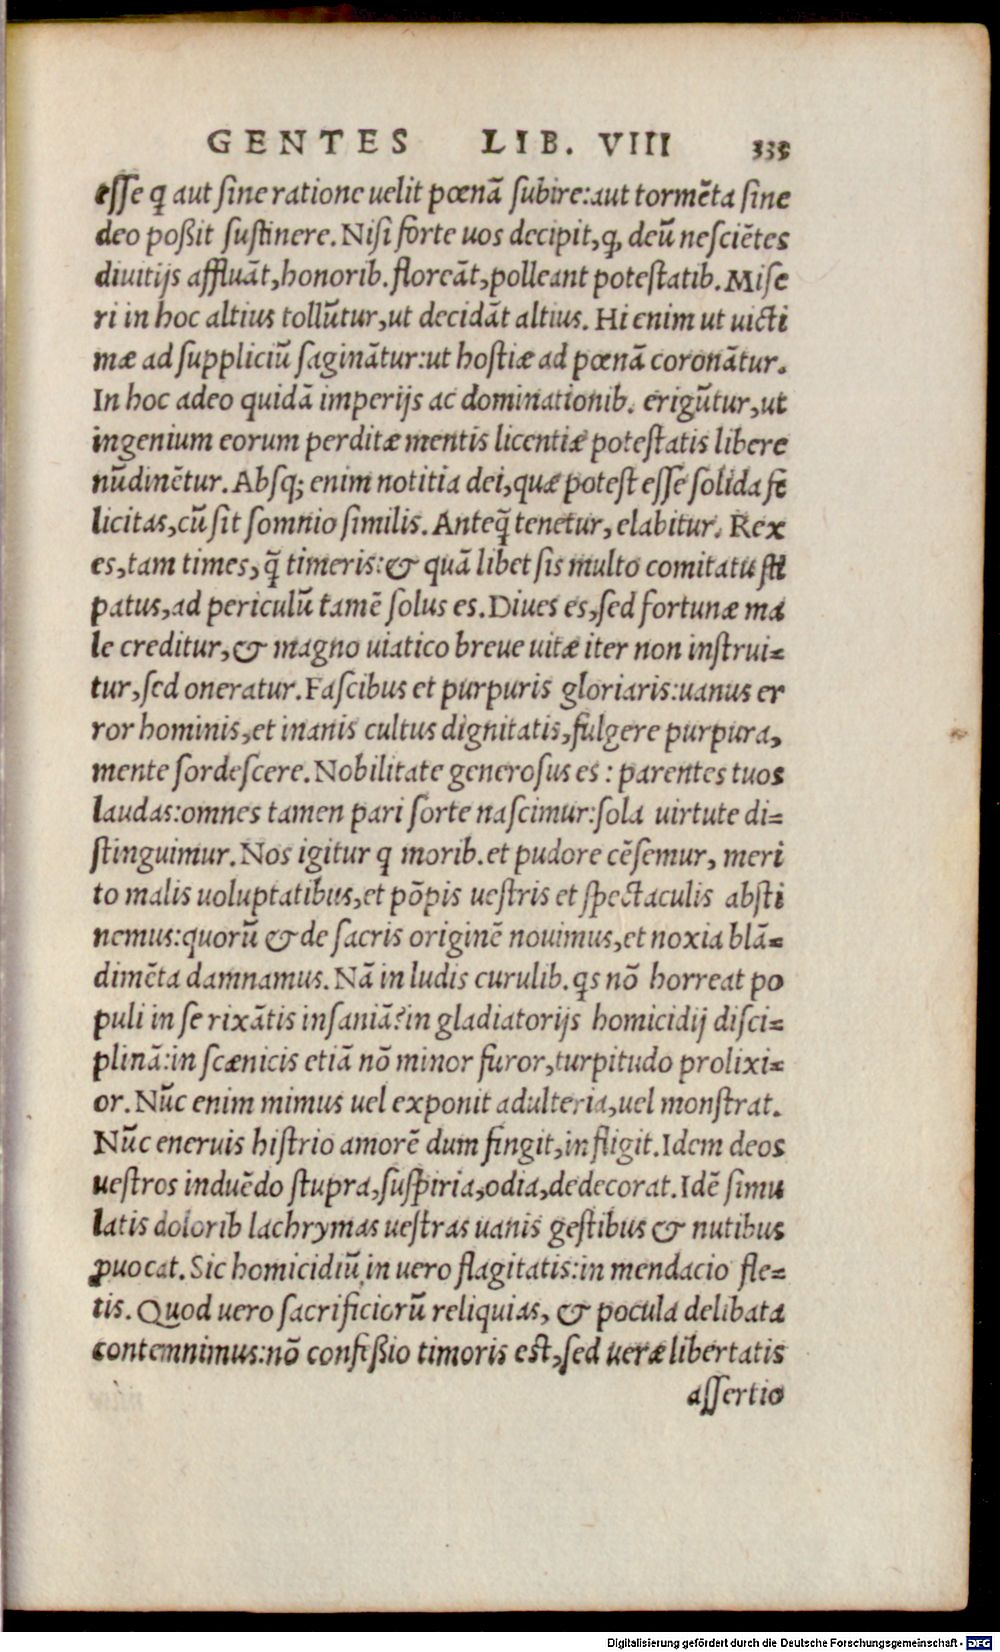 GENTES LIB. VIII 335
esse q aut sine ratione uelit pœnā subire:aut tormēta sine
deo poßit sustinere. Nisi forte uos decipit,q, deū nesciētes
divitijs affluāt,honorib. floreāt,polleant potestatib. Mise
ri in hoc altius tollūtur,ut decidāt altius. Hi enim ut uicti
mæ ad suppliciū saginātur:ut hostiæ ad pœnā coronātur.
In hoc adeo quidā imperijs ac dominationib. erigūtur,ut
ingenium eorum perditæ mentis licentiæ potestatis libere
nūdinētur. Absq; enim notitia dei,quæ potest esse solida fe
licitas,cū sit somnio similis. Anteq̄ tenetur, elabitur. Rex
es,tam times,q̄ timeris:& quā libet sis multo comitatu sti
patus,ad periculū tamē solus es. Diues es,sed fortunæ ma
le creditur,& magno uiatico breue uitæ iter non instrui=
tur,sed oneratur. Fascibus et purpuris gloriaris:uanus er
ror hominis,et inanis cultus dignitatis,fulgere purpura,
mente sordescere. Nobilitate generosus es : parentes tuos
laudas:omnes tamen pari sorte nascimur:sola virtute di=
stinguimur. Nos igitur q morib. et pudore cēsemur, meri
to malis uoluptatibus,et pōpis uestris et spectaculis absti
nemus:quorū & de sacris originē nouimus,et noxia blā=
dimēta damnamus. Nā in ludis curulib. qs nō horreat po
puli in se rixātis insaniā?in gladiatorijs homicidij disci=
plinā:in scænicis etiā nō minor furor,turpitudo prolixi=
or. Nūc enim mimus uel exponit adulteria,uel monstrat.
Nūc eneruis histrio amorē dum fingit,infligit. Idem deos
uestros induēdo stupra,suspiria,odia,dedecorat. Idē simu
latis dolorib lachrymas uestras uanis gestibus & nutibus
ꝓuocat. Sic homicidiū in uero flagitatis:in mendacio fle=
tis. Quod uero sacrificiorū reliquias, & pocula delibata
contemnimus:nō confeßio timoris est,sed ueræ libertatis
assertio
Digitalisierung gefördert durch die Deutsche Forschungsgemeinschaft - DFG